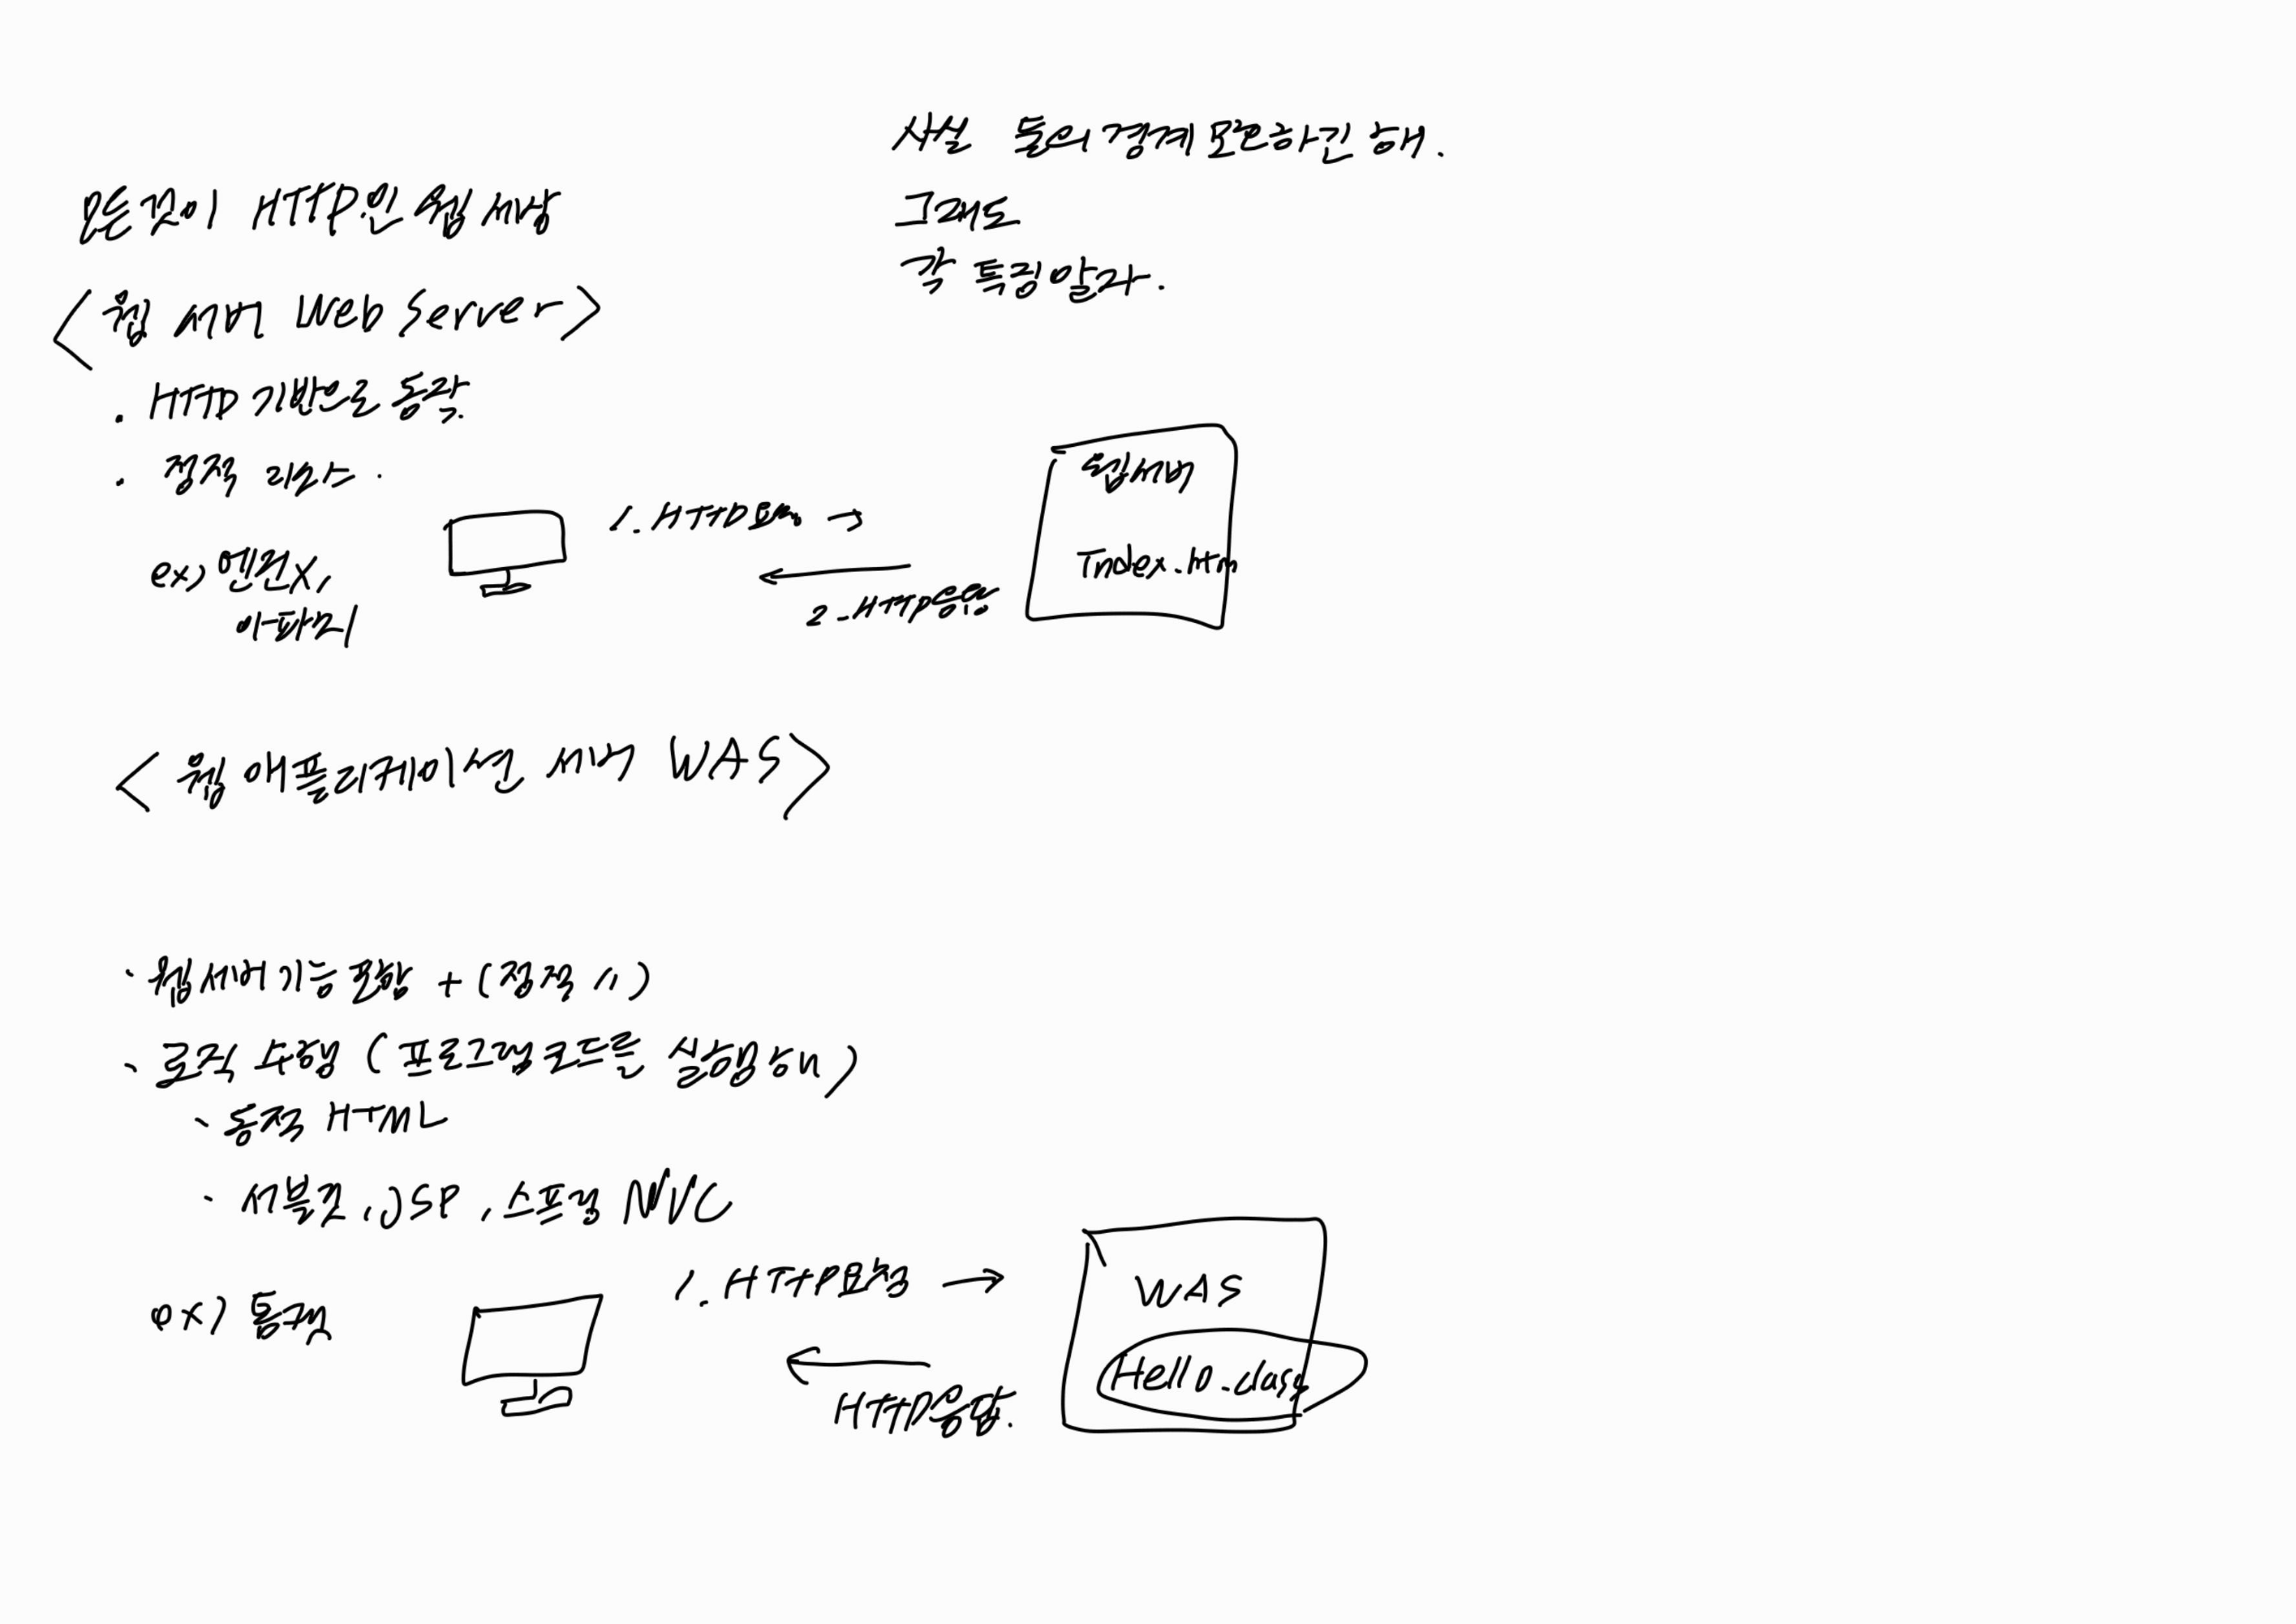 사실 둘의 경계 모호하긴 해.
그래도
각 특징 알라.
모든 것이 HTTP인 웹 세상
<웹 서버 Web Server>
. HTTP 기반으로 동작.
. 정적 리소스.
ex) 엔진X,
아파치
1. HTTP 요청 →
← 2. HTTP응답
웹서버
Index.htm
<웹 애플리케이션 서버 WAS>
· 웹서버 기능 포함 + (정적 〃)
· 로직 수행 (프로그램 코드를 실행해)
· 동적 HTML
· 서블릿, JSP, 스프링 MVC
ex) 톰캣
1. HTTP요청 →
← HTTP응답.
WAS
Hello.class